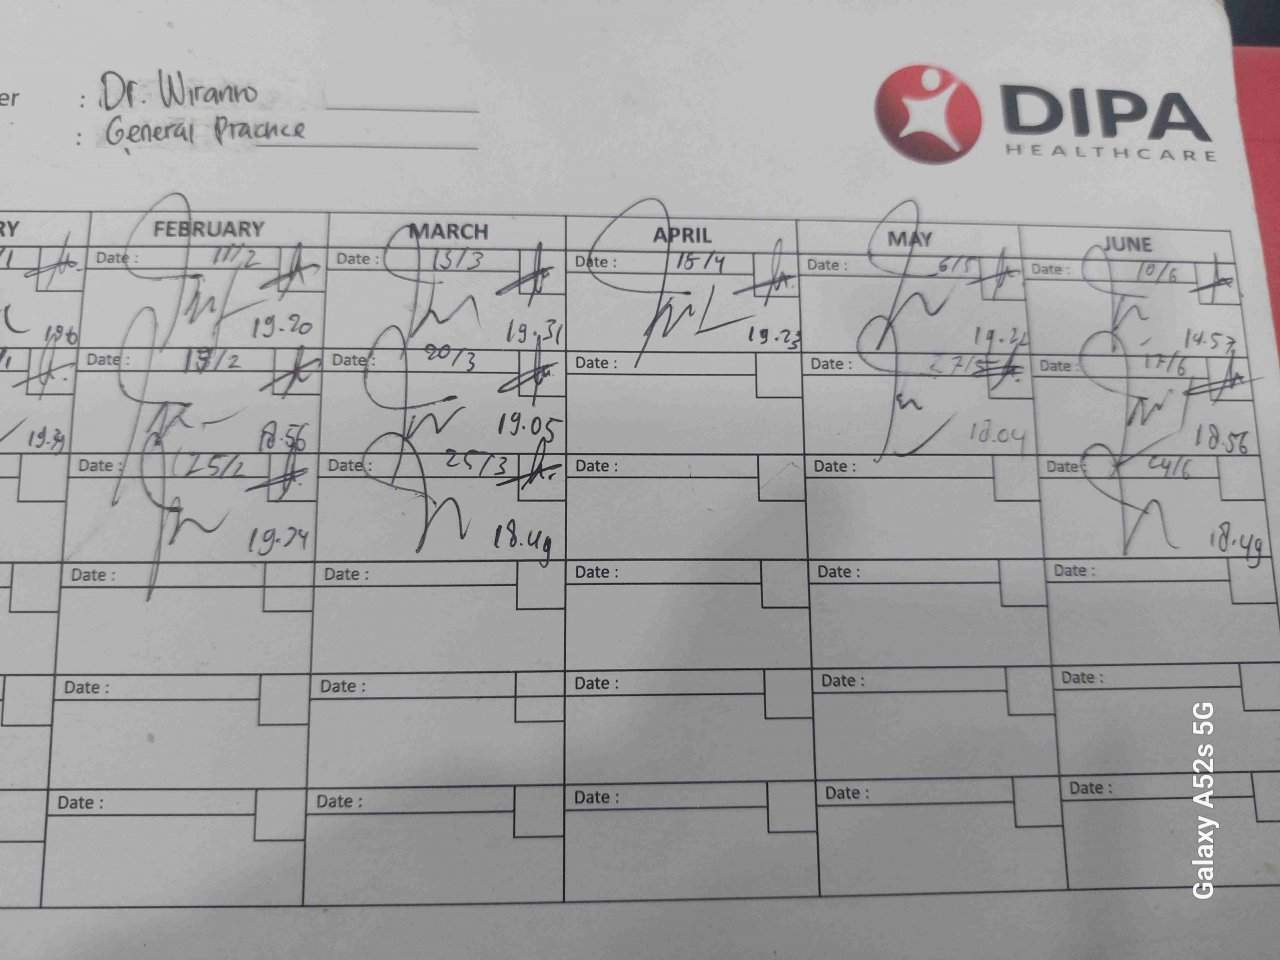 er : Dr. Wiranro
: General Pracnce
DIPA
HEALTHCARE
RY FEBRUARY MARCH APRIL MAY JUNE
/1 Date : 11/2 Date : 13/3 Date : 15/4 Date : 6/5 Date : 10/6
19.20 19.31 19.23 14.57
/1 Date : Date : 20/3 Date : Date : 27/5 Date : 17/6
19.39 18.56 19.05 18.04 18.56
Date : 25/2 Date : 25/3 Date : Date : Date : 24/6
19.24 18.49 18.49
Date : Date : Date : Date : Date :
Date : Date : Date : Date : Date :
Date : Date : Date : Date : Date :
Galaxy A52s 5G